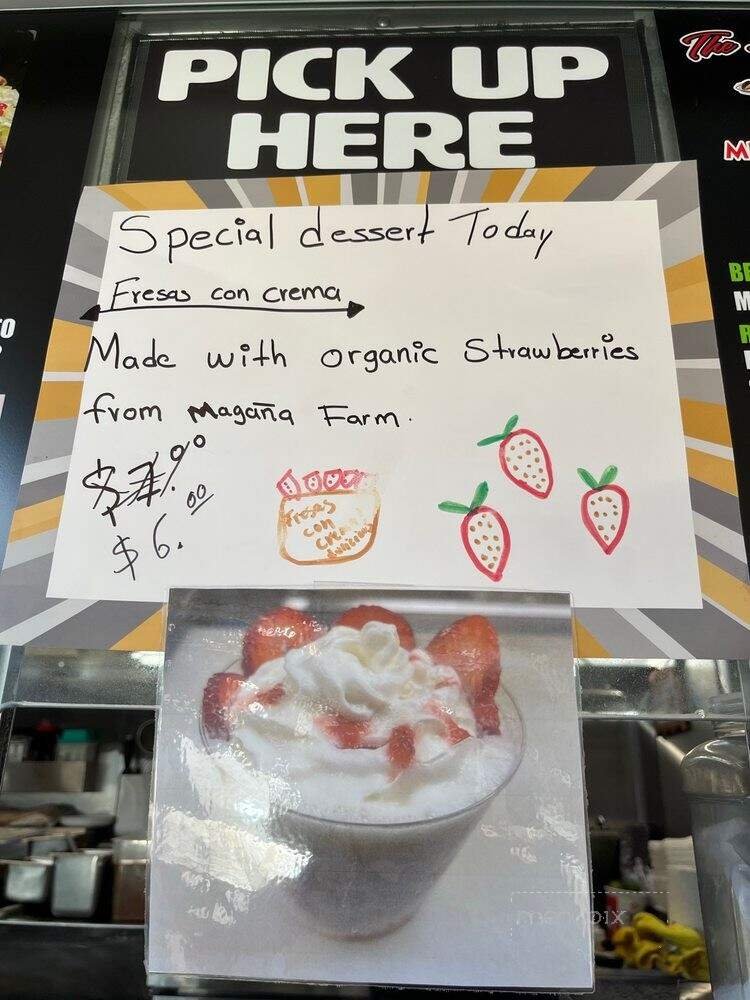 PICK UP
HERE
The
Special dessert Today
Fresas con crema
Made with organic Strawberries
from Magaña Farm.
$7.00
$6.00
fresas
con
crema